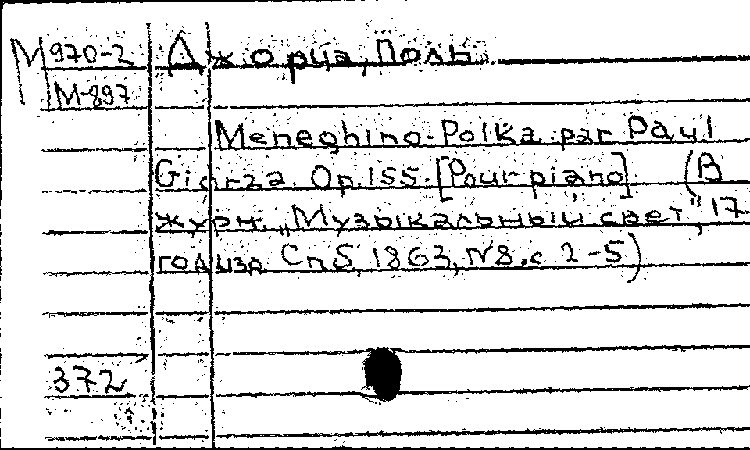 М 970-2 Джорца, Поль.
М-897
Meneghino-Polka par Paul
Giorza Op.155. [Pour piano] (В
журн. „Музыкальный свет", 17
год изд. Спб, 1863, №8, с 2-5)
372